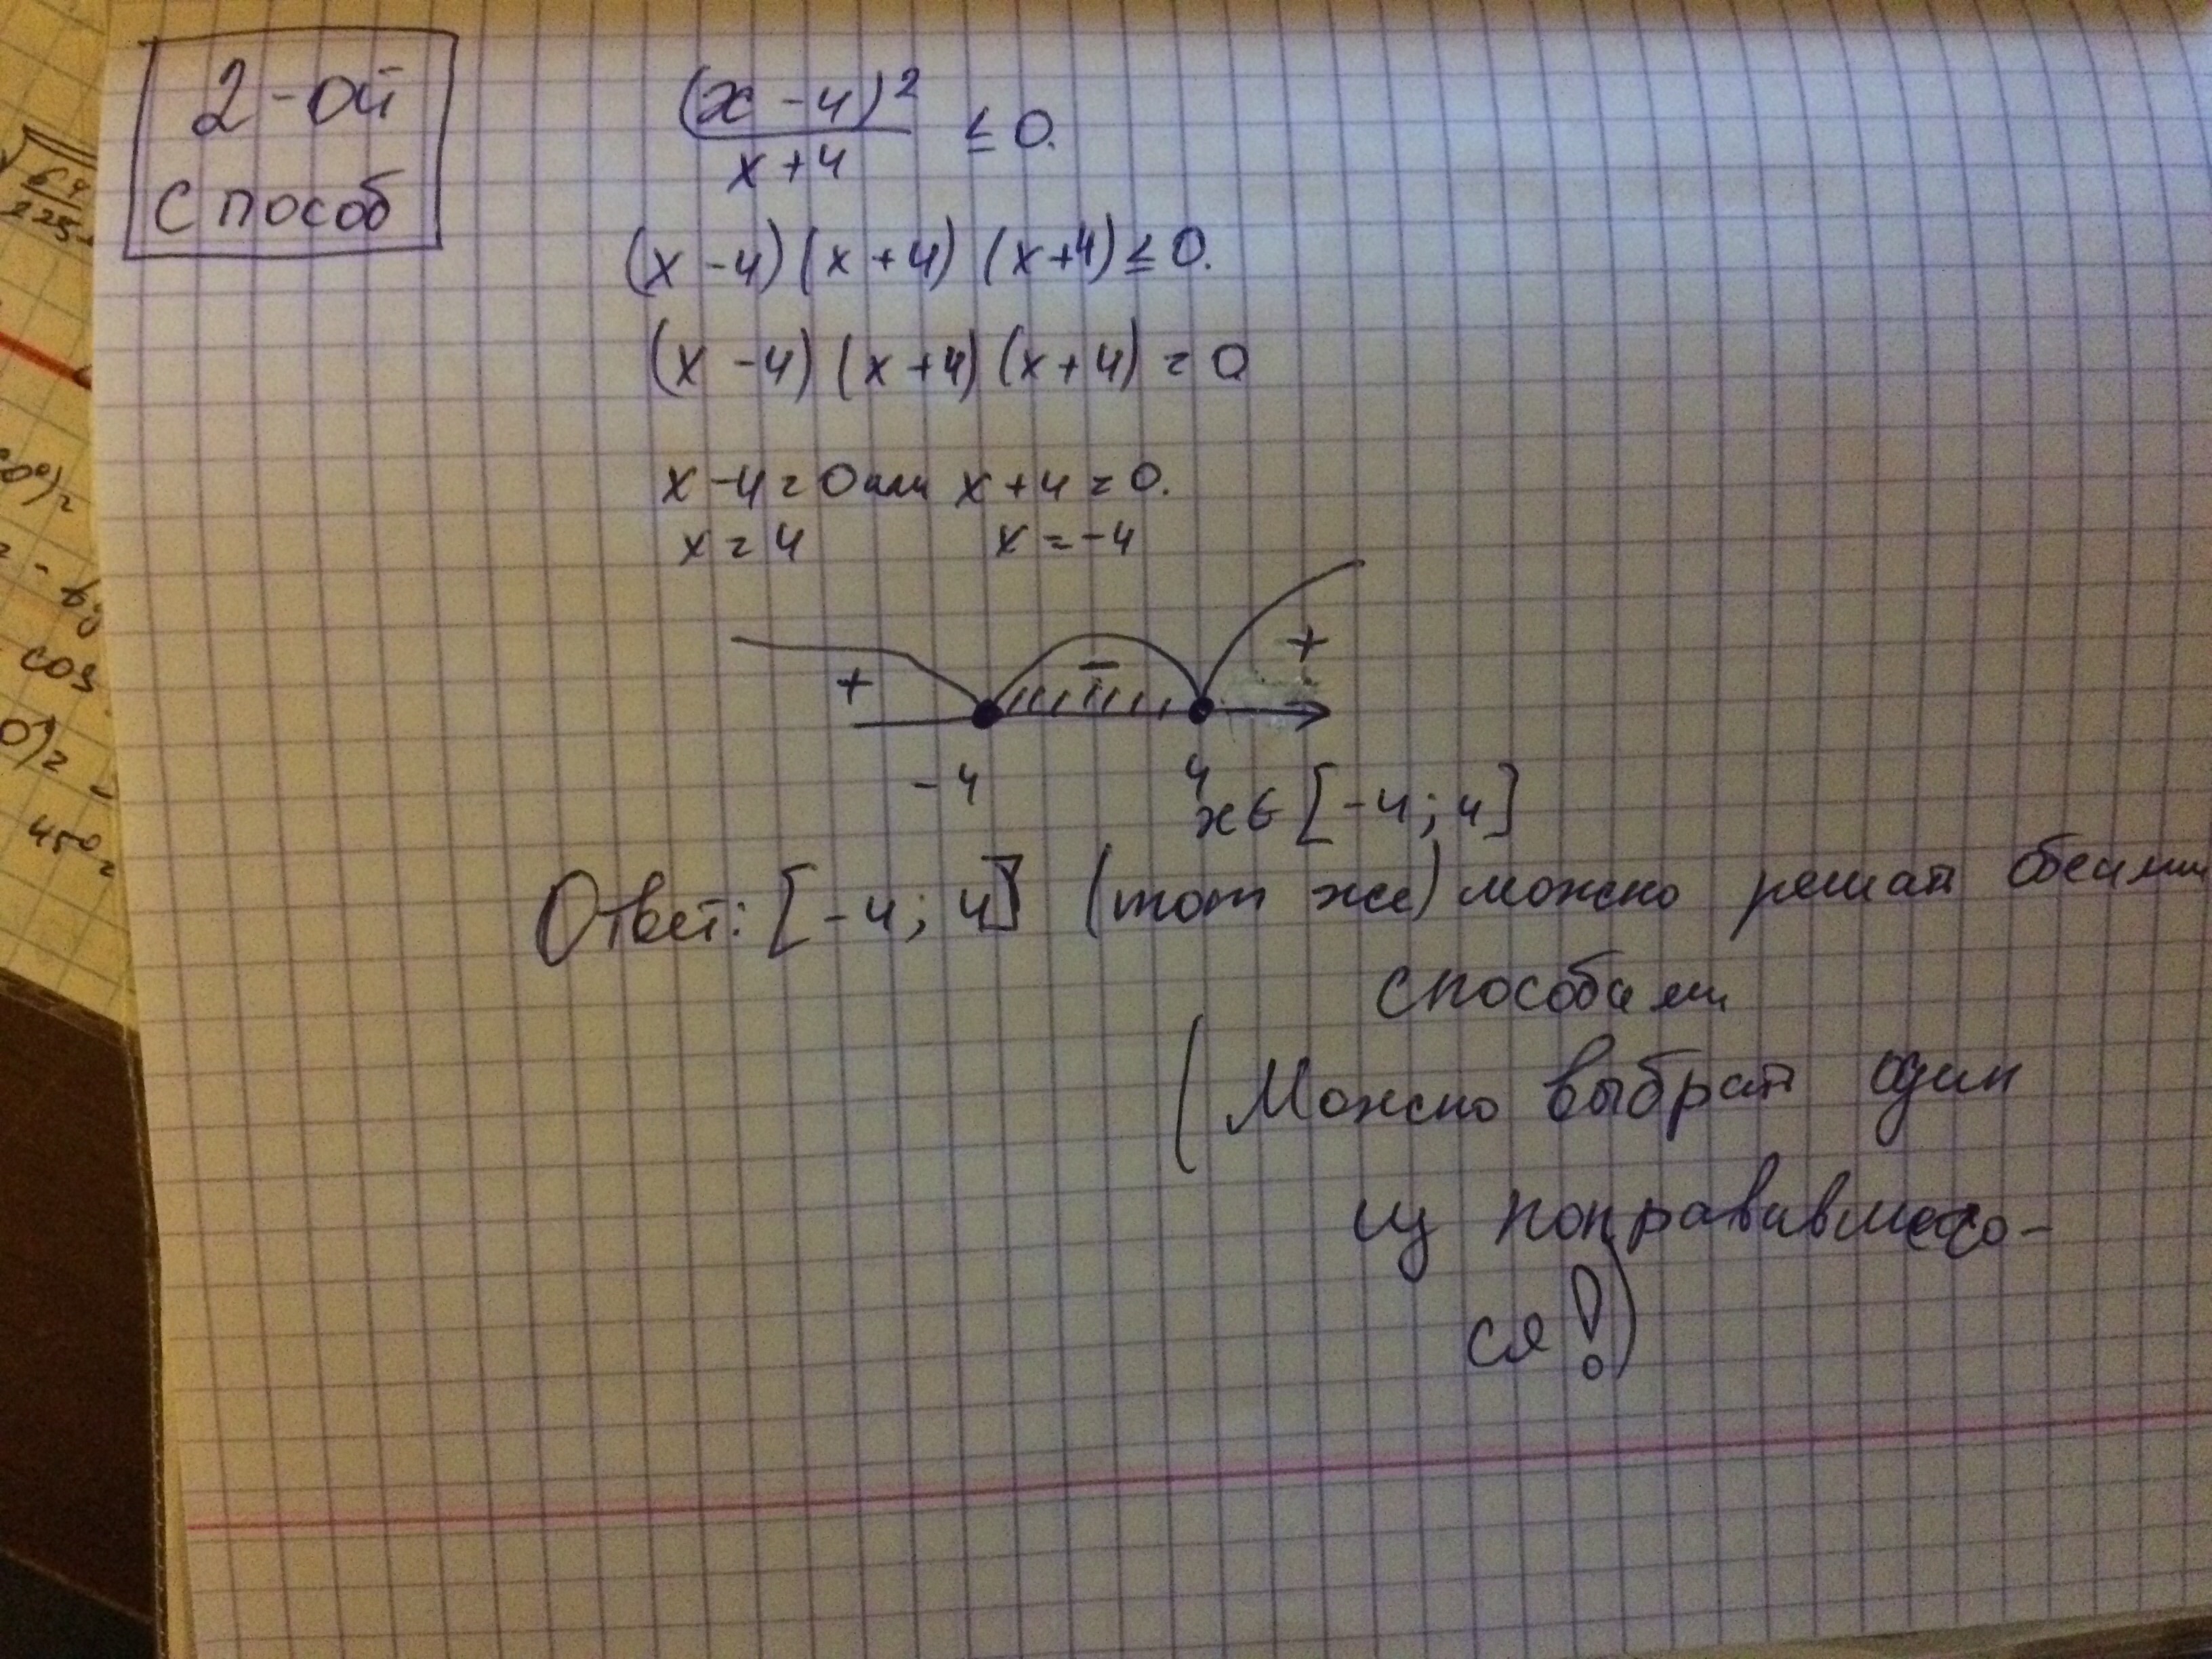 2-ой
способ
(x-4)²
/
x+4 ≤ 0.
(x-4)(x+4)(x+4) ≤ 0.
(x-4)(x+4)(x+4) = 0
x-4=0 или x+4=0.
x=4 x=-4
+ - +
-4 4
x∈[-4;4]
Ответ: [-4; 4] (тот же) можно решат обеими
способами
(Можно выбрат один
из понравившего-
ся!)
√64/225
cos
450